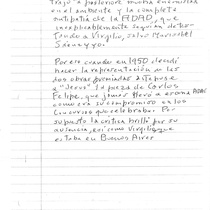 trajo a posteriori muchos enemigos
en el ambiente y la completa
antipatía de la ADAD, que
inexplicablemente seguían detes-
tando a Virgilio, salvo
y yo.
Por eso cuando en 1950 decidí
hacer la representación de las
dos obras premiadas
a "Jesús" la pieza de Carlos
Felipe, que jamás llevó a escena ADAD
como era su compromiso en los
concursos que celebraba. Por
supuesto la crítica brilló por su
ausencia, así como Virgilio que
estaba en Buenos Aires